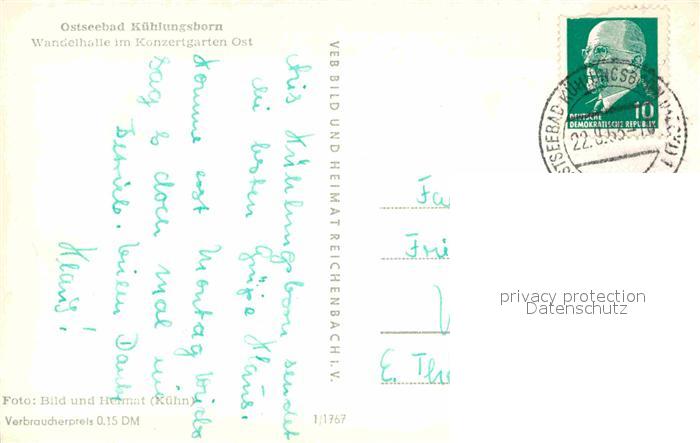 Ostseebad Kühlungsborn
Wandelhalle im Konzertgarten Ost
Aus Kühlungsborn sendet
die besten Grüße Klaus.
Komme erst Montag
sag doch mal
Betrieb. Vielen Dank
Klaus!
Foto: Bild und Heimat (Kühn)
Verbraucherpreis 0.15 DM
VEB BILD UND HEIMAT REICHENBACH i. V.
1/1767
10
DEUTSCHE
DEMOKRATISCHE REPUBLIK
OSTSEEBAD KÜHLUNGSBORN
22.
Fa
E. Th
privacy protection
Datenschutz